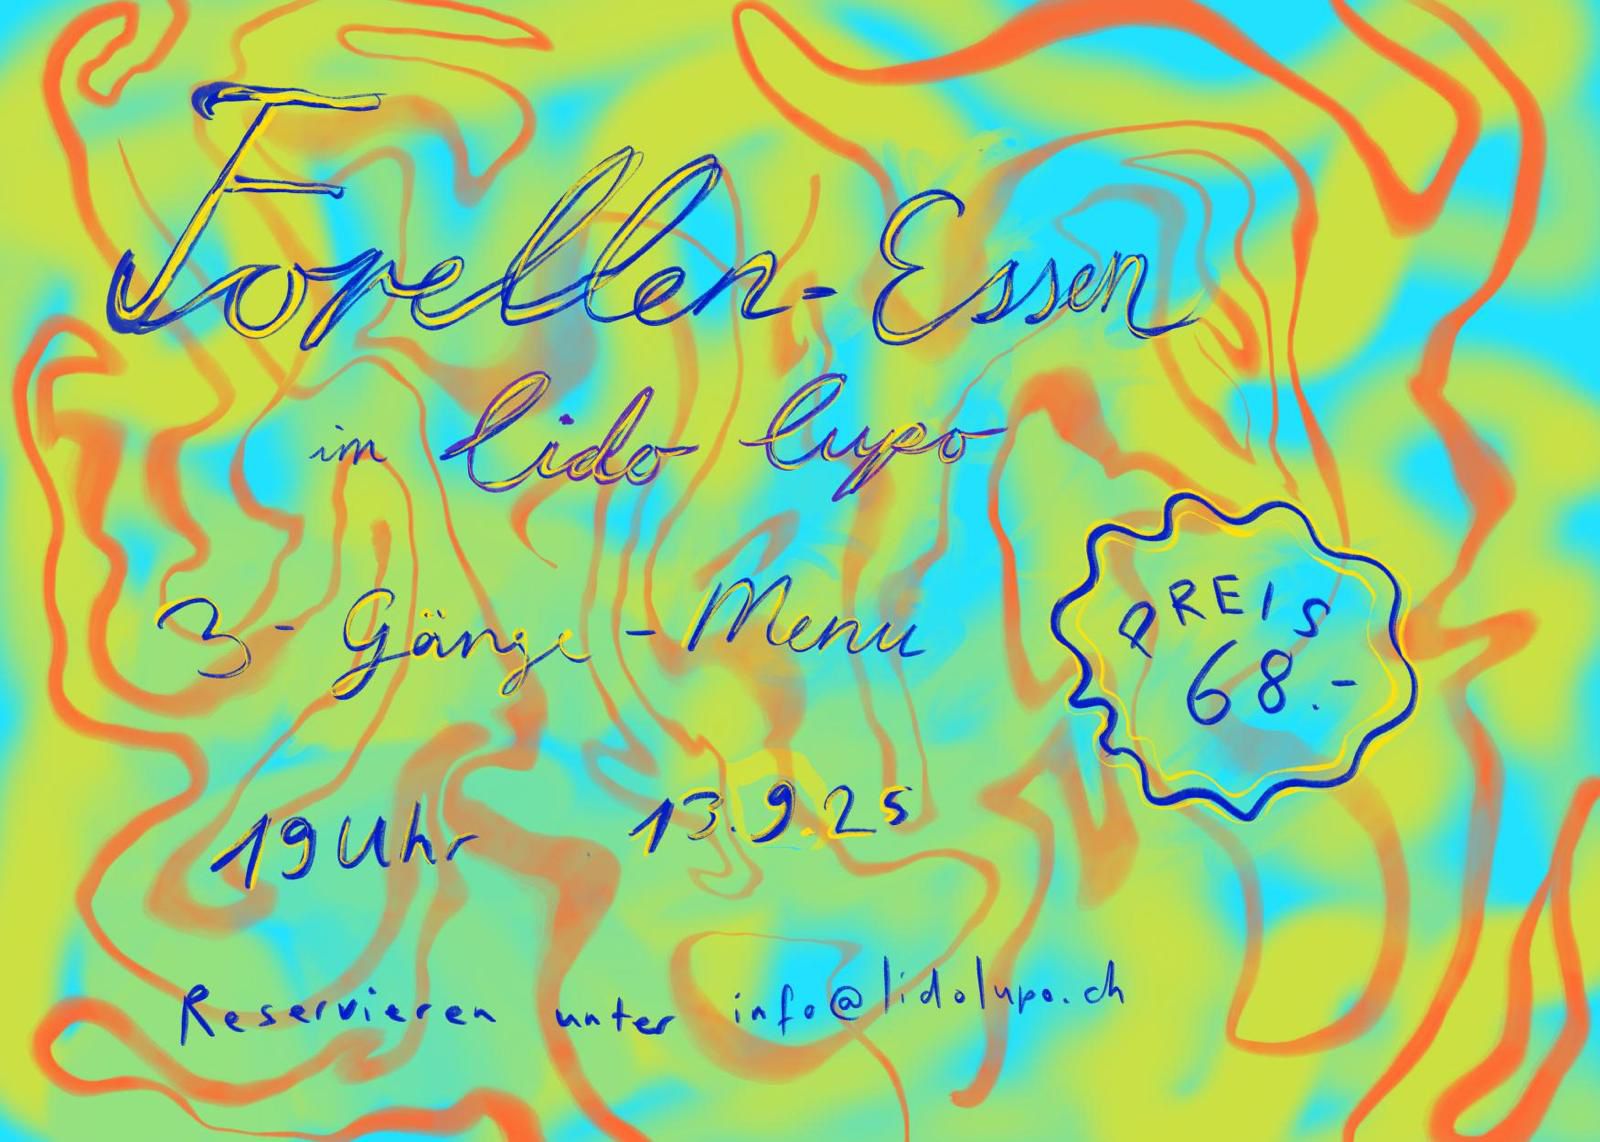 Forellen-Essen
im lido lupo
3-Gänge-Menu
PREIS
68.-
19 Uhr 13.9.25
Reservieren unter info@lidolupo.ch